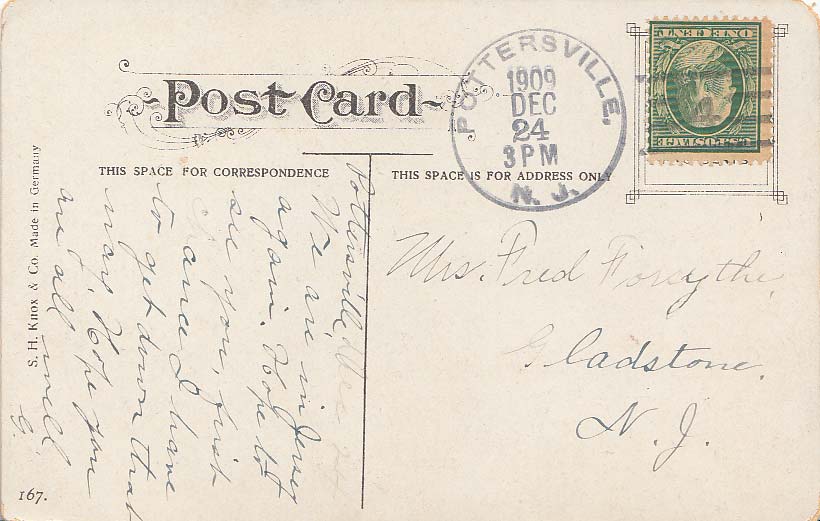 Post Card
THIS SPACE FOR CORRESPONDENCE
THIS SPACE IS FOR ADDRESS ONLY
POTTERSVILLE,
1909
DEC
24
3 PM
N. J.
U.S. POSTAGE
ONE CENT
Pottersville, Dec 24
We are in Jersey
again. Hope to
see you, first
chance I have
to get down that
way. Hope you
are all well
G.
Mrs. Fred Forsythe,
Gladstone.
N. J.
S. H. Knox & Co. Made in Germany
167.